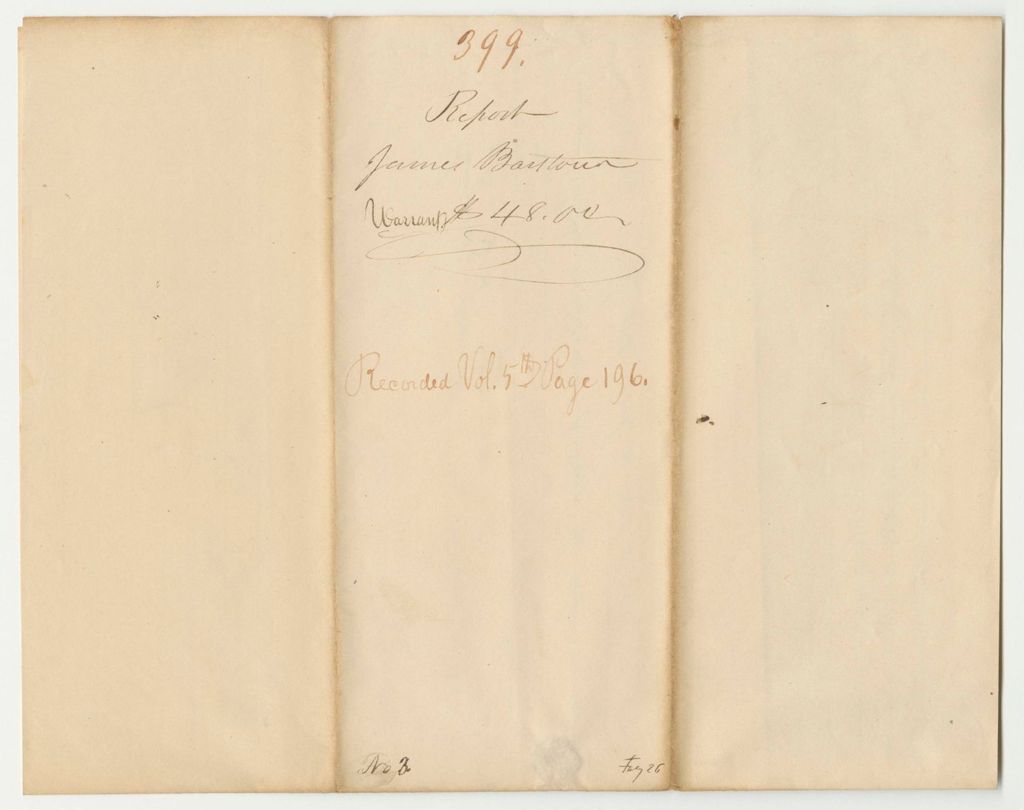 399.
Report
James Barstow
Warrant $48.00
Recorded Vol. 5th Page 196.
No 2